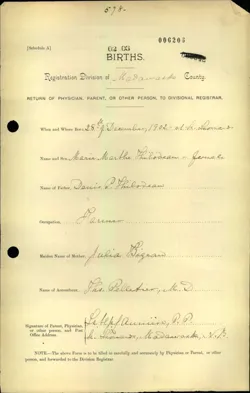 578-
006206
[Schedule A]
02 03
BIRTHS.
Registration Division of Madawaska County.
RETURN OF PHYSICIAN, PARENT, OR OTHER PERSON, TO DIVISIONAL REGISTRAR.
When and Where Born 28th of December, 1902 at St. Leonard
Name and Sex Marie Marthe Thibodeau female
Name of Father, Denis P. Thibodeau
Occupation, Farmer
Maiden Name of Mother,
Name of Accoucheur, Thos. Pelletier, M.D.
Signature of Parent, Physician, or other person, and Post Office Address P.P.
Madawaska, N.B.
NOTE.—The above Form is to be filled in carefully and extensively by Physician or Parent, or other person, and forwarded to the Division Registrar.